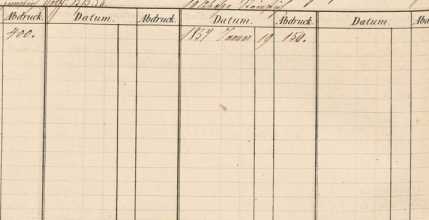 Abdruck. Datum. Abdruck. Datum. Abdruck. Datum.
400. 1857 Janu 19 150.